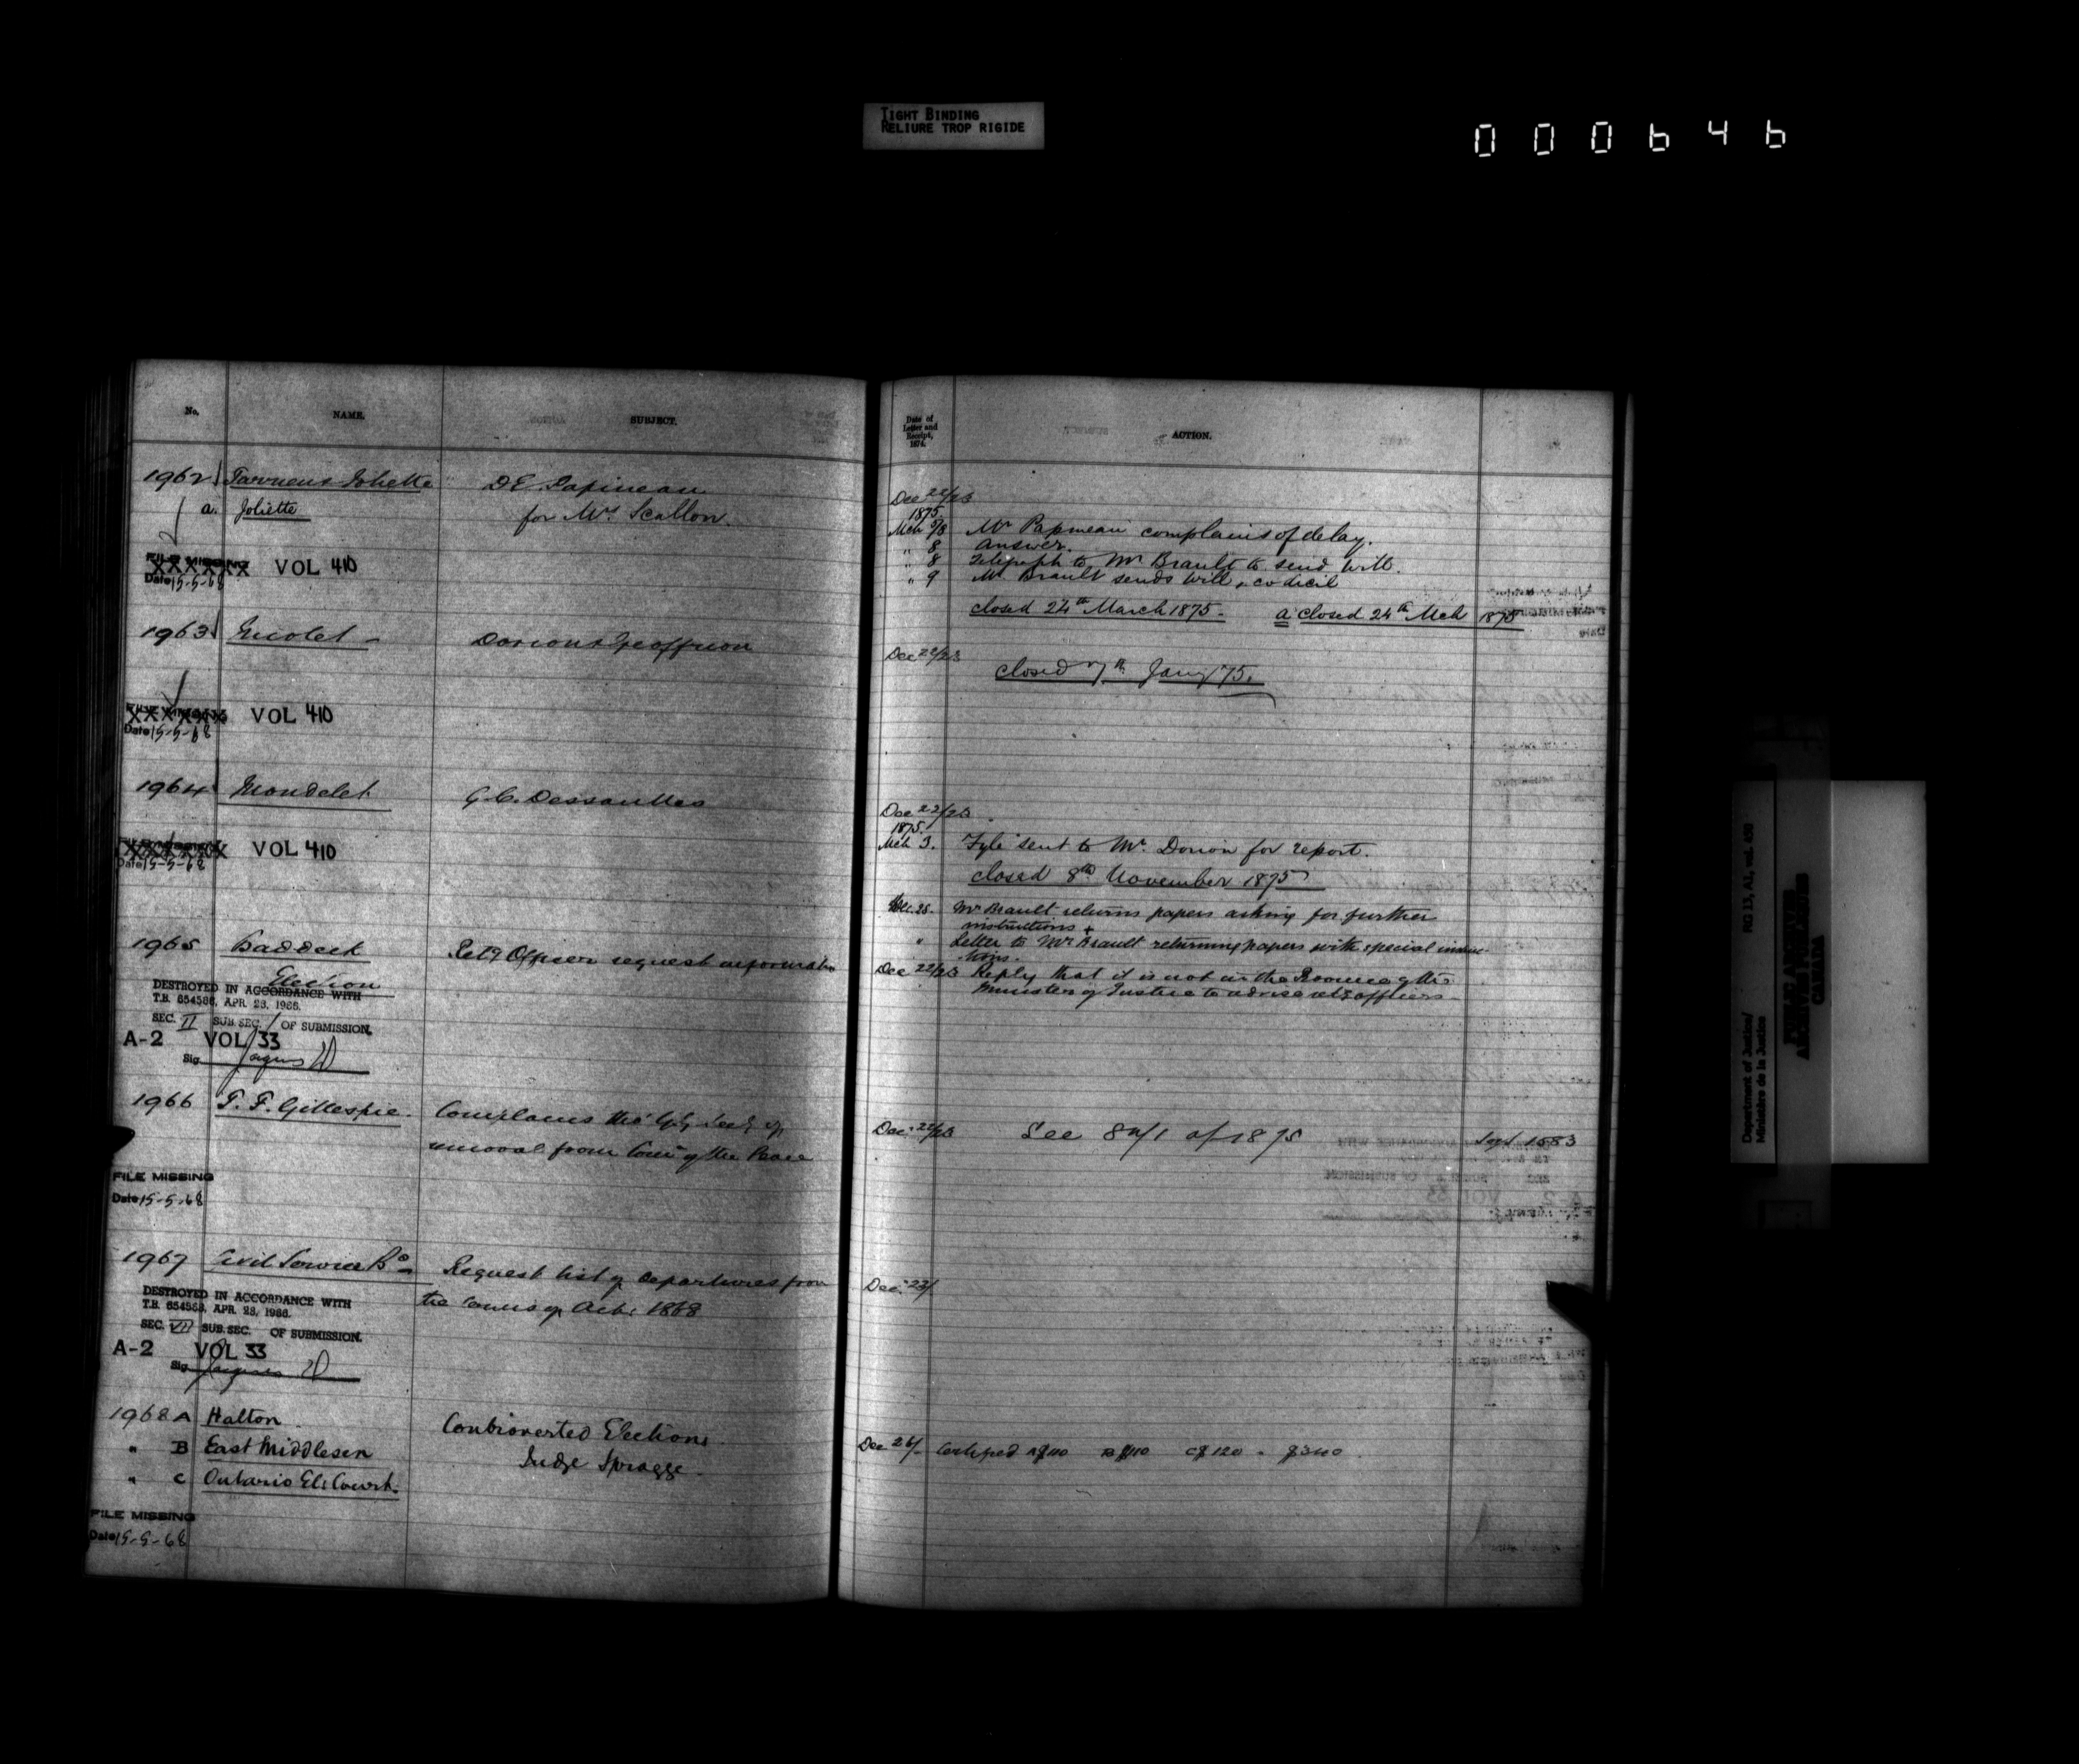 TIGHT BINDING
RELIURE TROP RIGIDE
000646
No. NAME. SUBJECT.
1962 Joliette D E Papineau
a. Joliette for Mrs Scallon.
FILE MISSING VOL 410
Date 15-5-68
1963 Nicolet - Dorion & Geoffrion
VOL 410
Date 15-5-68
1964 Mondelet G. C. Dessaulles
VOL 410
Date 15-5-68
1965 Baddeck Retg Officer request information
Election
DESTROYED IN ACCORDANCE WITH
T.B. 654588, APR. 28, 1966.
SEC. II SUB SEC. 1 OF SUBMISSION.
A-2 VOL 33
Sig.
1966 T. F. Gillespie. Complains the
removal from Com of the Peace
FILE MISSING
Date 15-5-68
1967 Civil Service Bd Request list of departures from
the 1868
DESTROYED IN ACCORDANCE WITH
T.B. 654588, APR. 28, 1966.
SEC. VII SUB. SEC. OF SUBMISSION.
A-2 VOL 33
Sig.
1968 A Halton Controverted Elections
" B East Middlesex Judge Spragge.
" C Ontario El: Court.
FILE MISSING
Date 15-5-68
Date of
Letter and
Receipt,
1874.
ACTION.
Dec 22/23
1875
Mch 5/8 Mr Papineau complains of delay.
" 8 Answer.
" 8 Telegraph to Mr Brault to send Will.
" 9 Mr Brault sends Will & codicil
closed 24th March 1875. a closed 24th Mch 1875
Dec 22/23
closed 7th Jany /75.
Dec 22/23
1875.
Mch 3. Fyle sent to Mr. Dorion for report.
closed 8th November 1875
Dec. 28. Mr Brault returns papers asking for further
instructions &
" Letter to Mr Brault returning papers with special instruc-
tions.
Dec 22/23 Reply that it is not in the Province of the
Minister of Justice to advise retg officers
Dec. 22/23 See 84/1 of 1875 1583
Dec. 23/
Dec 26/ Certified A $110 B $110 C $120 - $340
Department of Justice/
Ministère de la Justice
RG 13, A1, vol. 450
PUBLIC ARCHIVES
ARCHIVES PUBLIQUES
CANADA